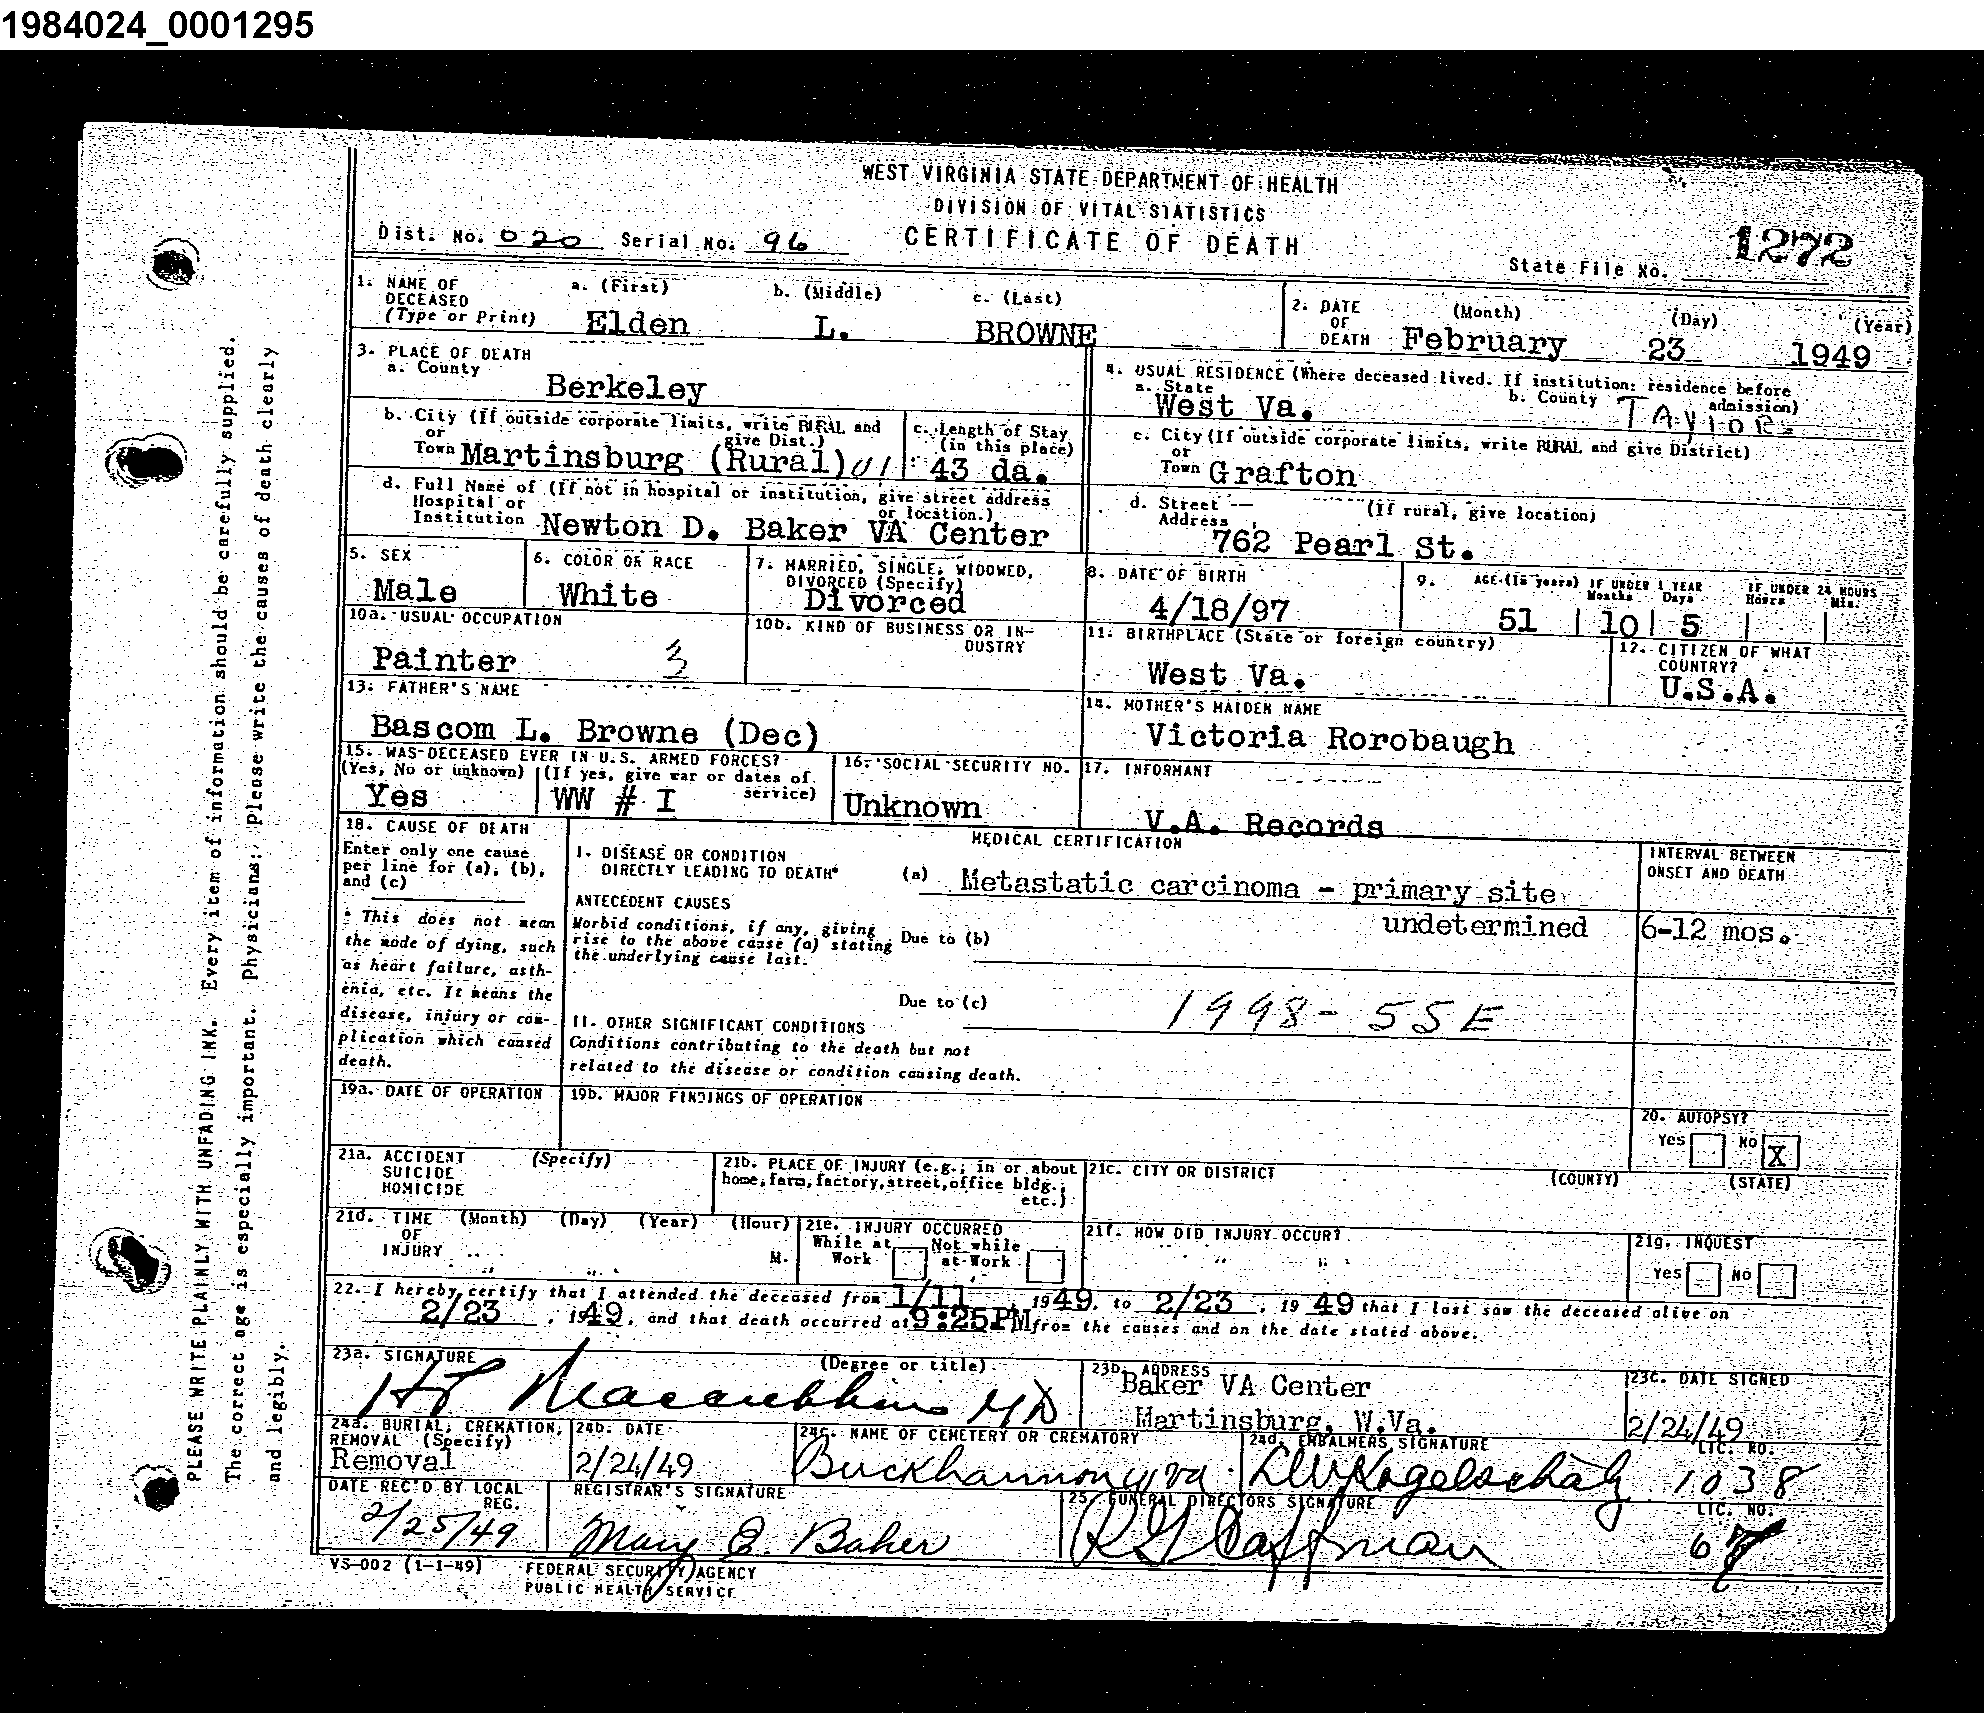 1984024_0001295
WEST VIRGINIA STATE DEPARTMENT OF HEALTH
DIVISION OF VITAL STATISTICS
Dist. No. 020 Serial No. 96 CERTIFICATE OF DEATH
State File No. 1272
1. NAME OF DECEASED (Type or Print) a. (First) b. (Middle) c. (Last)
Elden L. BROWNE
2. DATE OF DEATH (Month) (Day) (Year)
February 23 1949
3. PLACE OF DEATH
a. County
Berkeley
b. City (If outside corporate limits, write RURAL and give Dist.)
or
Town Martinsburg (Rural) 01
c. Length of Stay (in this place)
43 da.
d. Full Name of (If not in hospital or institution, give street address or location.)
Hospital or
Institution Newton D. Baker VA Center
4. USUAL RESIDENCE (Where deceased lived. If institution: residence before admission)
a. State b. County
West Va. TAYLOR
c. City (If outside corporate limits, write RURAL and give District)
or
Town Grafton
d. Street Address (If rural, give location)
762 Pearl St.
5. SEX
Male
6. COLOR OR RACE
White
7. MARRIED, SINGLE, WIDOWED, DIVORCED (Specify)
Divorced
8. DATE OF BIRTH
4/18/97
9. AGE (In years) IF UNDER 1 YEAR Months Days IF UNDER 24 HOURS Hours Min.
51 10 5
10a. USUAL OCCUPATION
Painter 3
10b. KIND OF BUSINESS OR INDUSTRY
11. BIRTHPLACE (State or foreign country)
West Va.
12. CITIZEN OF WHAT COUNTRY?
U.S.A.
13. FATHER'S NAME
Bascom L. Browne (Dec)
14. MOTHER'S MAIDEN NAME
Victoria Rorobaugh
15. WAS DECEASED EVER IN U.S. ARMED FORCES?
(Yes, No or unknown) (If yes, give war or dates of service)
Yes WW # I
16. SOCIAL SECURITY NO.
Unknown
17. INFORMANT
V.A. Records
18. CAUSE OF DEATH
Enter only one cause
per line for (a), (b),
and (c)
* This does not mean
the mode of dying, such
as heart failure, asth-
enia, etc. It means the
disease, injury or com-
plication which caused
death.
MEDICAL CERTIFICATION
I. DISEASE OR CONDITION
DIRECTLY LEADING TO DEATH* (a) Metastatic carcinoma - primary site
undetermined
ANTECEDENT CAUSES
Morbid conditions, if any, giving
rise to the above cause (a) stating
the underlying cause last.
Due to (b)
Due to (c)
1998- 55E
INTERVAL BETWEEN
ONSET AND DEATH
6-12 mos.
II. OTHER SIGNIFICANT CONDITIONS
Conditions contributing to the death but not
related to the disease or condition causing death.
19a. DATE OF OPERATION
19b. MAJOR FINDINGS OF OPERATION
20. AUTOPSY?
Yes No X
21a. ACCIDENT (Specify)
SUICIDE
HOMICIDE
21b. PLACE OF INJURY (e.g., in or about
home, farm, factory, street, office bldg.,
etc.)
21c. CITY OR DISTRICT (COUNTY) (STATE)
21d. TIME (Month) (Day) (Year) (Hour)
OF
INJURY M.
21e. INJURY OCCURRED
While at Work Not while at Work
21f. HOW DID INJURY OCCUR?
21g. INQUEST
Yes No
22. I hereby certify that I attended the deceased from 1/11, 1949, to 2/23, 1949 that I last saw the deceased alive on
2/23, 1949, and that death occurred at 9:25 PM from the causes and on the date stated above.
23a. SIGNATURE (Degree or title)
MD
23b. ADDRESS
Baker VA Center
Martinsburg, W.Va.
23c. DATE SIGNED
2/24/49
24a. BURIAL, CREMATION, REMOVAL (Specify)
Removal
24b. DATE
2/24/49
24c. NAME OF CEMETERY OR CREMATORY
Buckhannon W Va
24d. EMBALMERS SIGNATURE LIC. NO.
Kogelschatz 1038
DATE REC'D BY LOCAL REG.
2/25/49
REGISTRAR'S SIGNATURE
Mary E. Baker
25. FUNERAL DIRECTORS SIGNATURE LIC. NO.
VS-002 (1-1-49) FEDERAL SECURITY AGENCY
PUBLIC HEALTH SERVICE
PLEASE WRITE PLAINLY WITH UNFADING INK. Every item of information should be carefully supplied.
The correct age is especially important. Physicians: please write the causes of death clearly
and legibly.